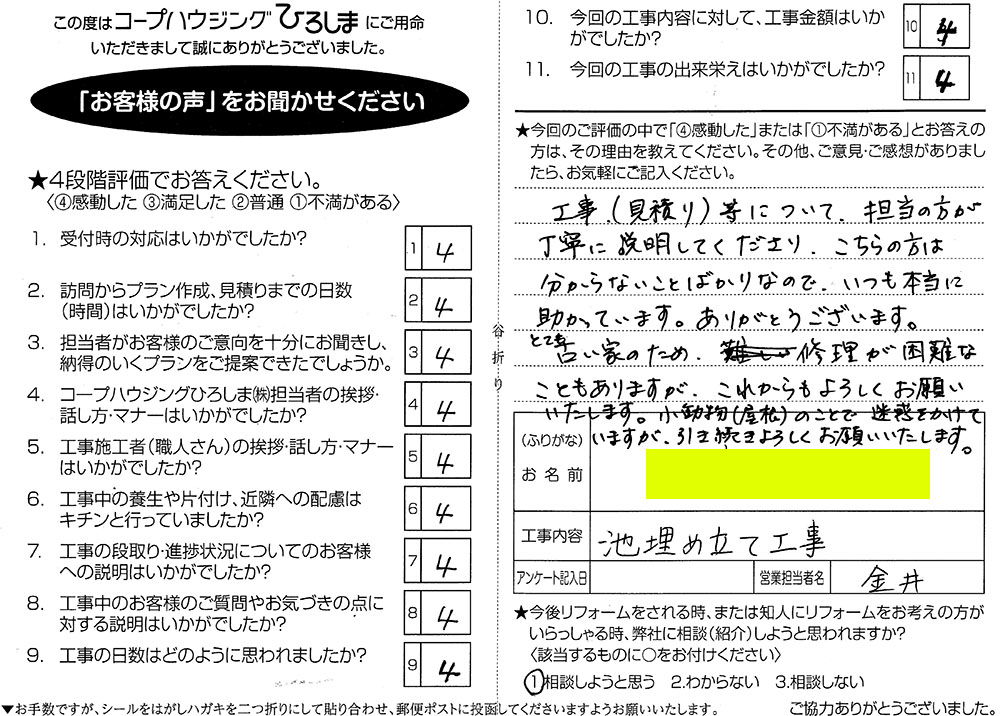 この度はコープハウジングひろしまにご用命
いただきまして誠にありがとうございました。
「お客様の声」をお聞かせください
★4段階評価でお答えください。
〈④感動した ③満足した ②普通 ①不満がある〉
1. 受付時の対応はいかがでしたか?
1 4
2. 訪問からプラン作成、見積りまでの日数
(時間)はいかがでしたか?
2 4
3. 担当者がお客様のご意向を十分にお聞きし、
納得のいくプランをご提案できたでしょうか。
3 4
4. コープハウジングひろしま㈱担当者の挨拶・
話し方・マナーはいかがでしたか?
4 4
5. 工事施工者(職人さん)の挨拶・話し方・マナー
はいかがでしたか?
5 4
6. 工事中の養生や片付け、近隣への配慮は
キチンと行っていましたか?
6 4
7. 工事の段取り・進捗状況についてのお客様
への説明はいかがでしたか?
7 4
8. 工事中のお客様のご質問やお気づきの点に
対する説明はいかがでしたか?
8 4
9. 工事の日数はどのように思われましたか?
9 4
▼お手数ですが、シールをはがしハガキを二つ折りにして貼り合わせ、郵便ポストに投函してくださいますようお願いいたします。
谷折り
10. 今回の工事内容に対して、工事金額はいか
がでしたか?
10 4
11. 今回の工事の出来栄えはいかがでしたか?
11 4
★今回のご評価の中で「④感動した」または「①不満がある」とお答えの
方は、その理由を教えてください。その他、ご意見・ご感想がありまし
たら、お気軽にご記入ください。
工事.(見積り)等について、担当の方が
丁寧に説明してくださり、こちらの方は
分からないことばかりなので、いつも本当に
助かっています。ありがとうございます。
とても古い家のため、難しい修理が困難な
こともありますが、これからもよろしくお願い
いたします。小動物(屋根)のことで迷惑をかけて
いますが、引き続きよろしくお願いいたします。
(ふりがな)
お名前
工事内容 池埋め立て工事
アンケート記入日 営業担当者名 金井
★今後リフォームをされる時、または知人にリフォームをお考えの方が
いらっしゃる時、弊社に相談(紹介)しようと思われますか?
〈該当するものに○をお付けください〉
①相談しようと思う 2.わからない 3.相談しない
ご協力ありがとうございました。